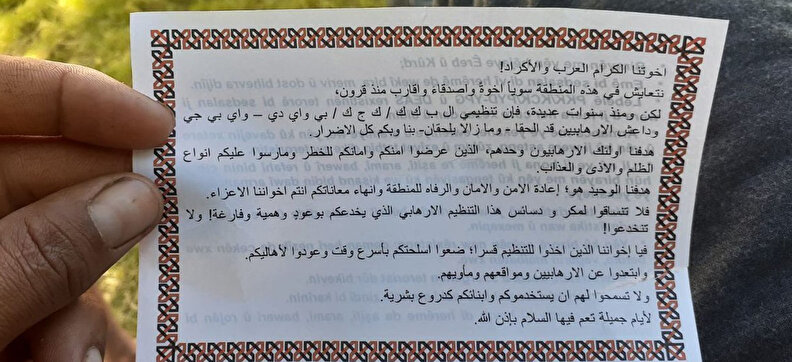 اخوتنا الكرام العرب والأكراد!
نتعايش في هذه المنطقة سوياً أخوةً واصدقاء واقارب منذ قرون،
لكن ومنذ سنوات عديدة، فإن تنظيمي ال ب ك ك / ك ج ك / بي واي دي – واي بي جي
وداعش الارهابيين قد الحقا – وما زالا يلحقان- بنا وبكم كل الاضرار.
هدفنا اولئك الارهابيون وحدهم، الذين عرضوا امنكم وامانكم للخطر ومارسوا عليكم انواع
الظلم والأذى والعذاب.
هدفنا الوحيد هو؛ إعادة الامن والامان والرفاه للمنطقة وانهاء معاناتكم انتم اخواننا الاعزاء.
فلا تنساقوا لمكر و دسائس هذا التنظيم الارهابي الذي يخدعكم بوعودٍ وهمية وفارغة! ولا
تنخدعوا!
فيا إخواننا الذين اخذوا للتنظيم قسرا؛ ضعوا اسلحتكم بأسرع وقت وعودوا لأهاليكم.
وابتعدوا عن الارهابيين ومواقعهم ومأويهم.
ولا تسمحوا لهم ان يستخدموكم وابنائكم كدروع بشرية.
لأيام جميلة تعم فيها السلام بإذن الله.